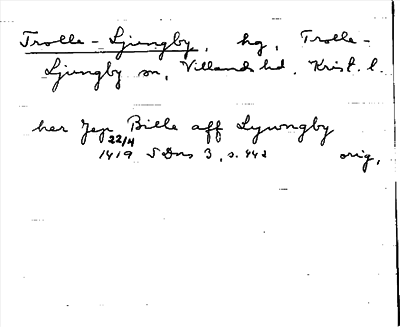 Trolle-Ljungby, hg, Trolle-
Ljungby sn, Villands hd. Krist. l.
her Jep Bille aff Lywngby
22/4
1419 SDns 3, s. 442 orig.